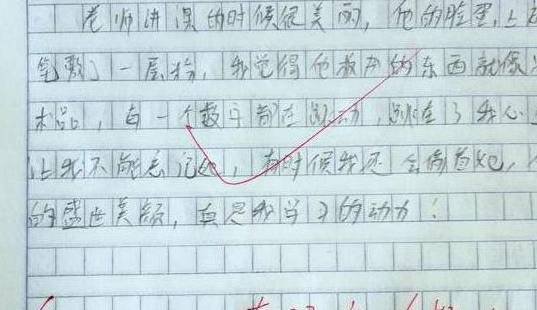 老师讲课的时候很美丽，他的脸望上
笔敷了一层粉，我觉得他教我的东西就像
术品，每一个数字都在跳动，跳进了我心
让我不能忘记她，有时候我还会偷看她，
的盛世美颜，真是我学习的动力！